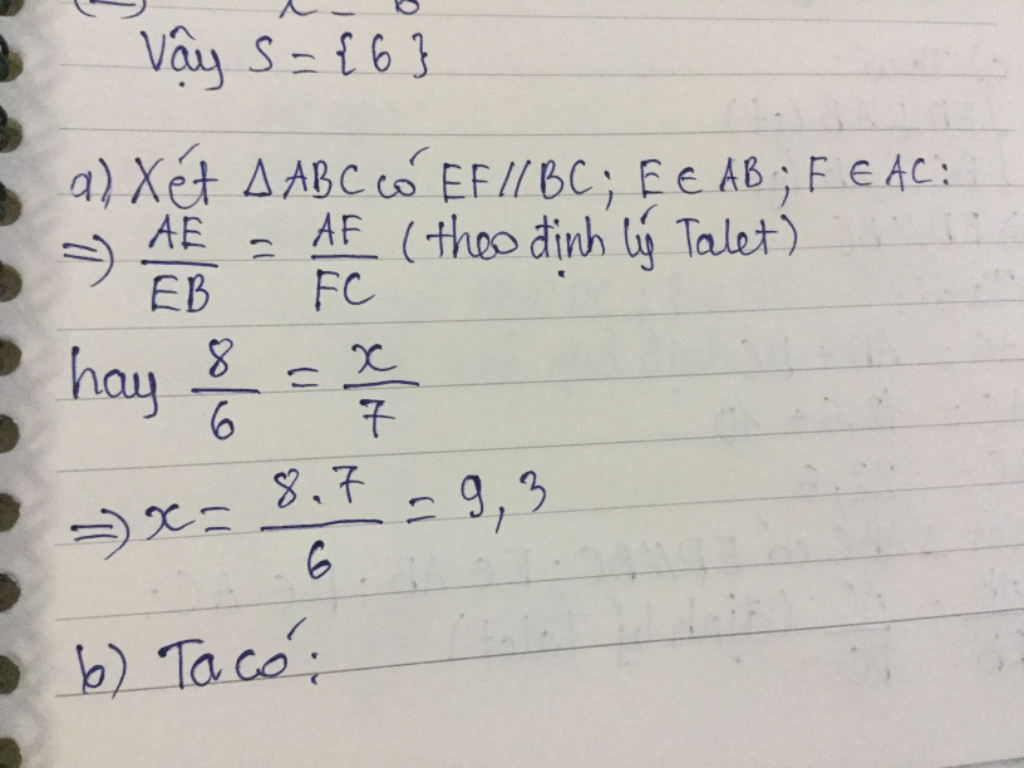 Vậy S = {6}
a) Xét ΔABC có EF//BC; E ∈ AB; F ∈ AC:
=> AE/EB = AF/FC (theo định lý Talet)
hay 8/6 = x/7
=> x = 8.7/6 = 9,3
b) Ta có: